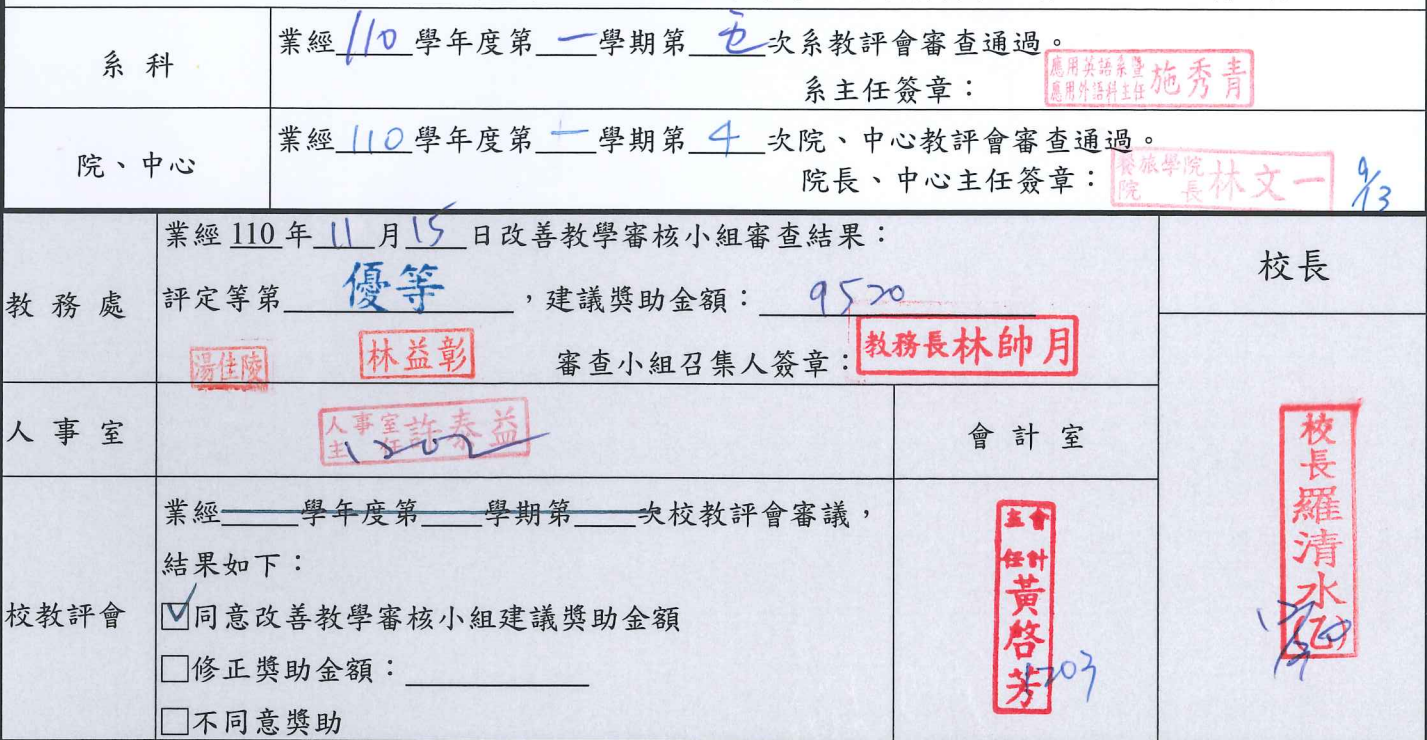 系科
業經110學年度第一學期第 次系教評會審查通過。
系主任簽章：
應用英語系暨應用外語科主任施秀青
院、中心
業經110學年度第一學期第4次院、中心教評會審查通過。
院長、中心主任簽章：
餐旅學院院長林文一 9/13
教務處
業經110年11月15日改善教學審核小組審查結果：
評定等第優等，建議獎助金額：9520
審查小組召集人簽章：
湯佳陵
林益彰
教務長林帥月
校長
校長羅清水(乙)
人事室
人事室主任許泰益
1202
會計室
會計主任黃啓芳
1203
校教評會
業經 學年度第 學期第 次校教評會審議，
結果如下：
☑同意改善教學審核小組建議獎助金額
□修正獎助金額：
□不同意獎助